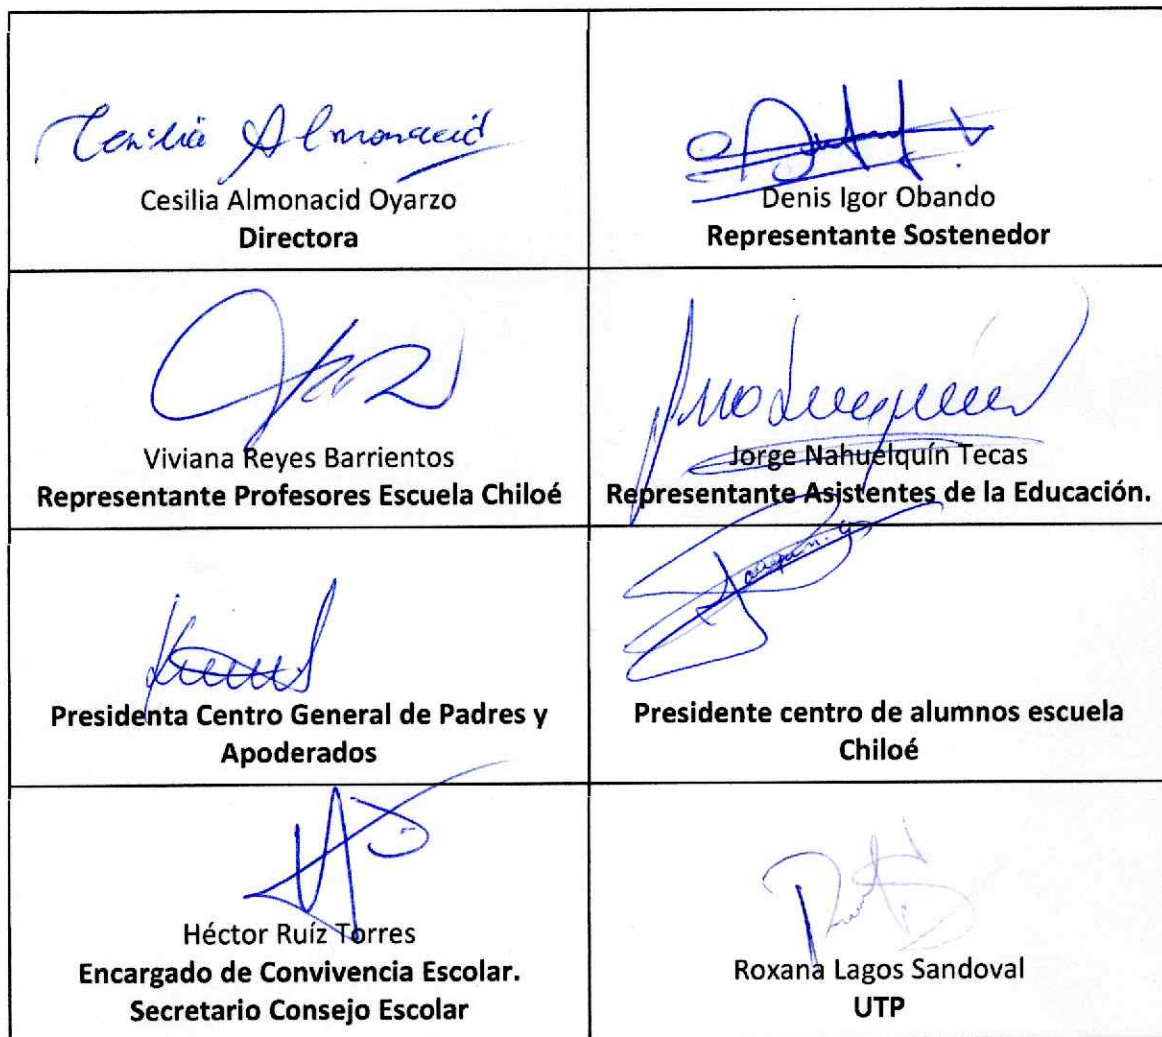 Cesilia Almonacid
Cesilia Almonacid Oyarzo
Directora
Denis Igor Obando
Representante Sostenedor
Viviana Reyes Barrientos
Representante Profesores Escuela Chiloé
Jorge Nahuelquín Tecas
Representante Asistentes de la Educación.
Presidenta Centro General de Padres y
Apoderados
Presidente centro de alumnos escuela
Chiloé
Héctor Ruíz Torres
Encargado de Convivencia Escolar.
Secretario Consejo Escolar
Roxana Lagos Sandoval
UTP